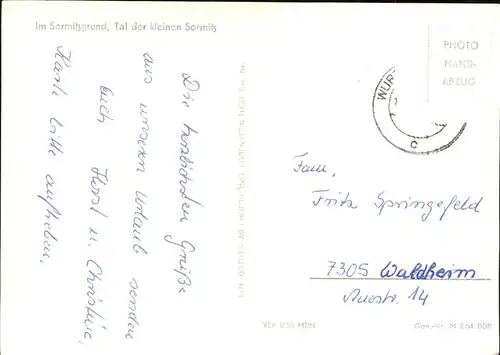 Im Sormitzgrund, Tal der kleinen Sormitz
PHOTO
HAND-
ABZUG
WUR
c
Die herzlichsten Grüße
aus unserem Urlaub senden
Euch Horst u. Christine.
Karte bitte aufheben.
Fam.
Fritz Springefeld
7305 Waldheim
14
VEP 0.20 MDN
DDR